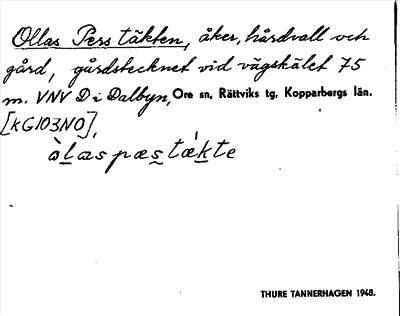 Ollas Pers täkten, åker, hårdvall och
gård, gårdstecknet vid vägskälet 75
m. VNV D i Dalbyn, Ore sn, Rättviks tg, Kopparbergs län.
[KG103NO],
òlaspæstækte
THURE TANNERHAGEN 1948.